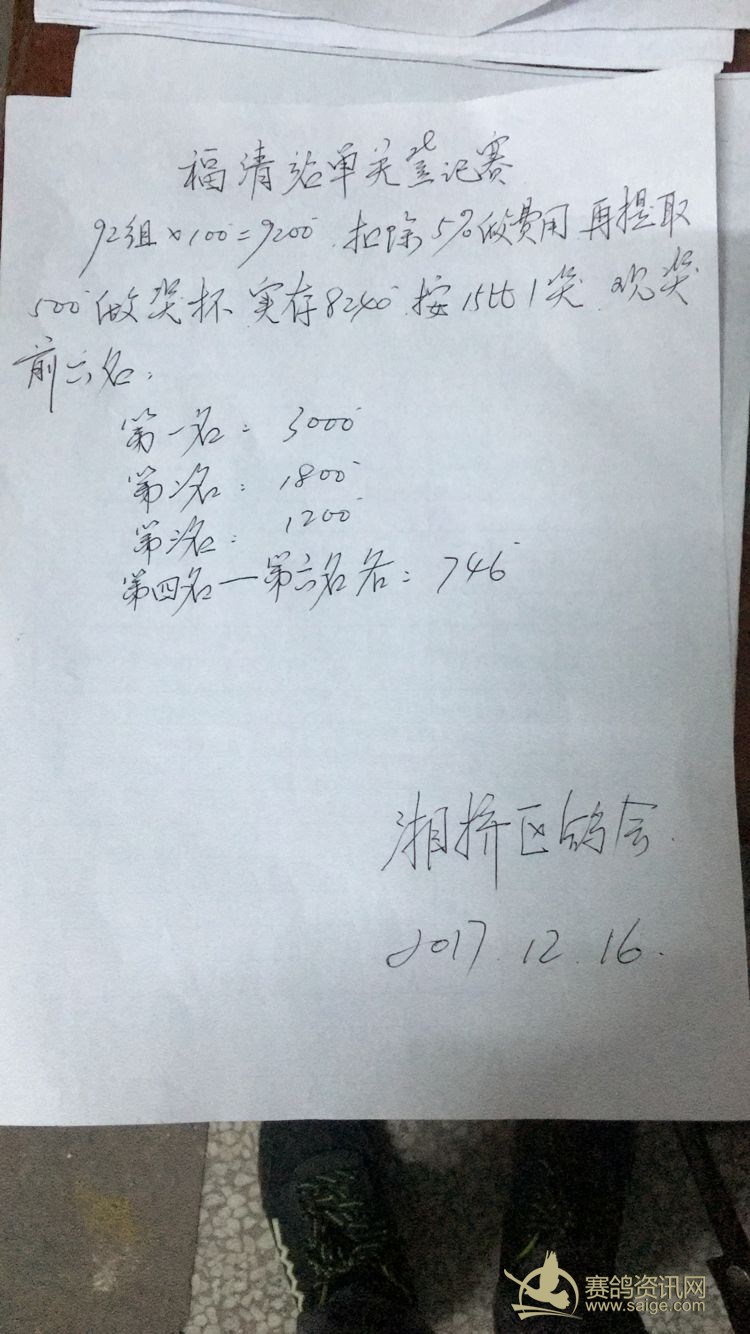 福清站单关登记赛
92组×100=9200 扣除5%做费用 再提取
500做奖杯 实存8240 按15比1奖 奖
前六名:
第一名: 3000
第二名: 1800
第三名: 1200
第四名—第六名各: 746
湘桥区鸽会
2017.12.16.
赛鸽资讯网
www.saige.com